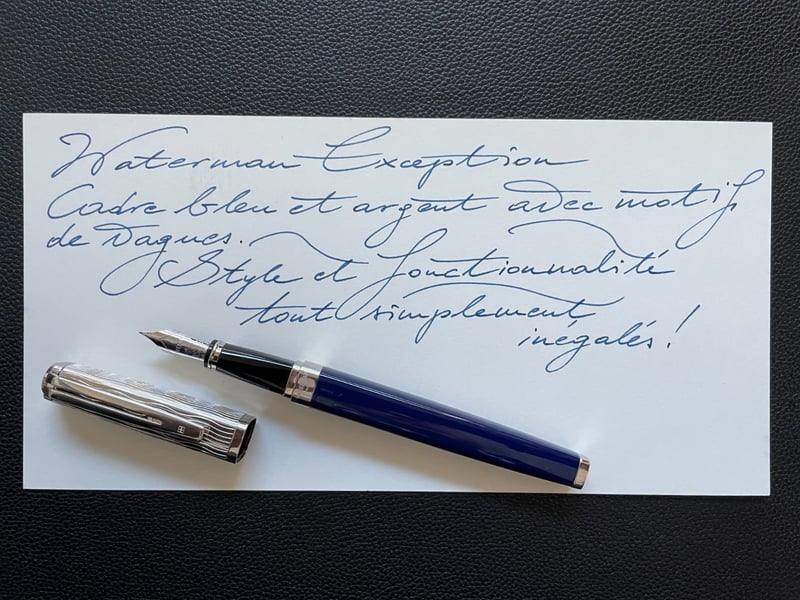 Waterman Exception
Cadre bleu et argent avec motif
de Vagues.
Style et fonctionnalité
tout simplement
inégalés !